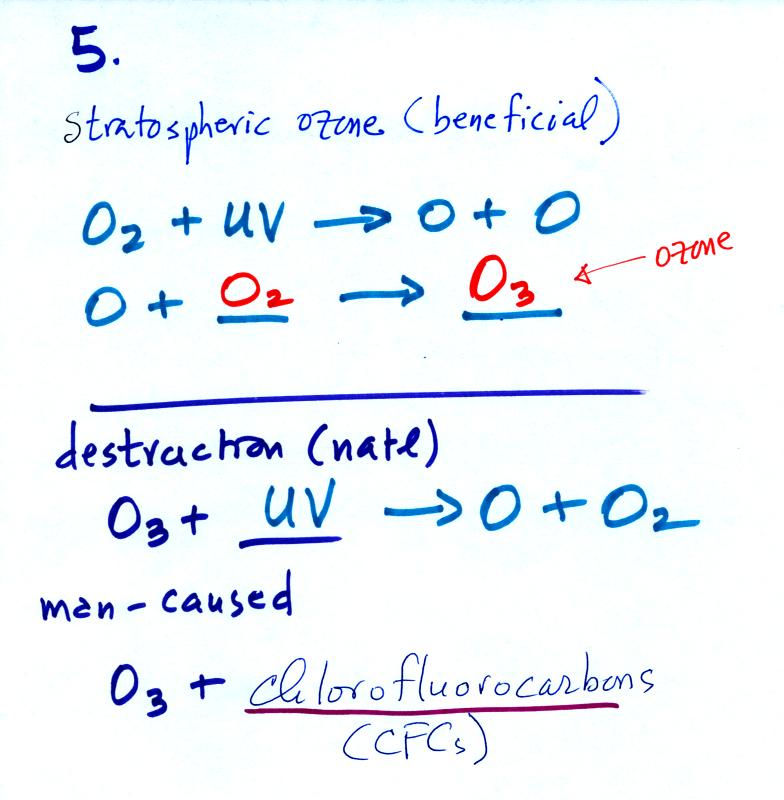 5.
stratospheric ozone (beneficial)
O₂ + UV → O + O
O + O₂ → O₃ ← ozone
destruction (natl)
O₃ + UV → O + O₂
man-caused
O₃ + chlorofluorocarbons
(CFCs)